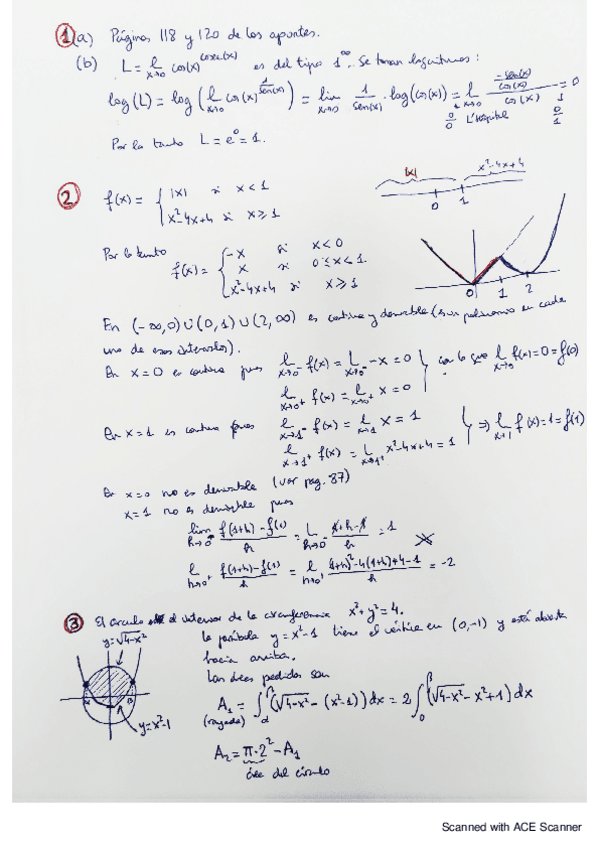 1 (a) Páginas 118 y 120 de los apuntes.
(b) L = lim x→0 cos(x)^cosec(x) es del tipo 1^∞. Se toman logaritmos:
log(L) = log(lim x→0 cos(x)^(1/sen(x))) = lim x→0 1/sen(x) · log(cos(x)) = lim x→0 (-sen(x)/cos(x))/cos(x) = 0/1 = 0
0/0 L'Hôpital 0/1
Por lo tanto L = e^0 = 1.
2 f(x) = { |x| si x < 1
x²-4x+4 si x ≥ 1
|x| x²-4x+4
0 1
Por lo tanto f(x) = { -x si x < 0
x si 0 ≤ x < 1
x²-4x+4 si x ≥ 1
0 1 2
En (-∞,0) ∪ (0,1) ∪ (2,∞) es continua y derivable (es un polinomio en cada
uno de esos intervalos).
En x = 0 es continua pues lim x→0⁻ f(x) = lim x→0⁻ -x = 0 } con lo que lim x→0 f(x) = 0 = f(0)
lim x→0⁺ f(x) = lim x→0⁺ x = 0
En x = 1 es continua pues lim x→1⁻ f(x) = lim x→1⁻ x = 1 } ⇒ lim x→1 f(x) = 1 = f(1)
lim x→1⁺ f(x) = lim x→1⁺ x²-4x+4 = 1
En x = 0 no es derivable (ver pag. 87)
x = 1 no es derivable pues
lim h→0⁻ (f(1+h)-f(1))/h = lim h→0⁻ (1+h-1)/h = 1
lim h→0⁺ (f(1+h)-f(1))/h = lim h→0⁺ ((1+h)²-4(1+h)+4-1)/h = -2
3 El círculo es el interior de la circunferencia x²+y² = 4.
y = √(4-x²)
la parábola y = x²-1 tiene el vértice en (0,-1) y está abierta
hacia arriba.
Las áreas pedidas son
A₁ = ∫_α^β (√(4-x²) - (x²-1)) dx = 2∫_0^β (√(4-x²) - x² + 1) dx
(rayada)
α β
y = x²-1
A₂ = π·2² - A₁
área del círculo
Scanned with ACE Scanner